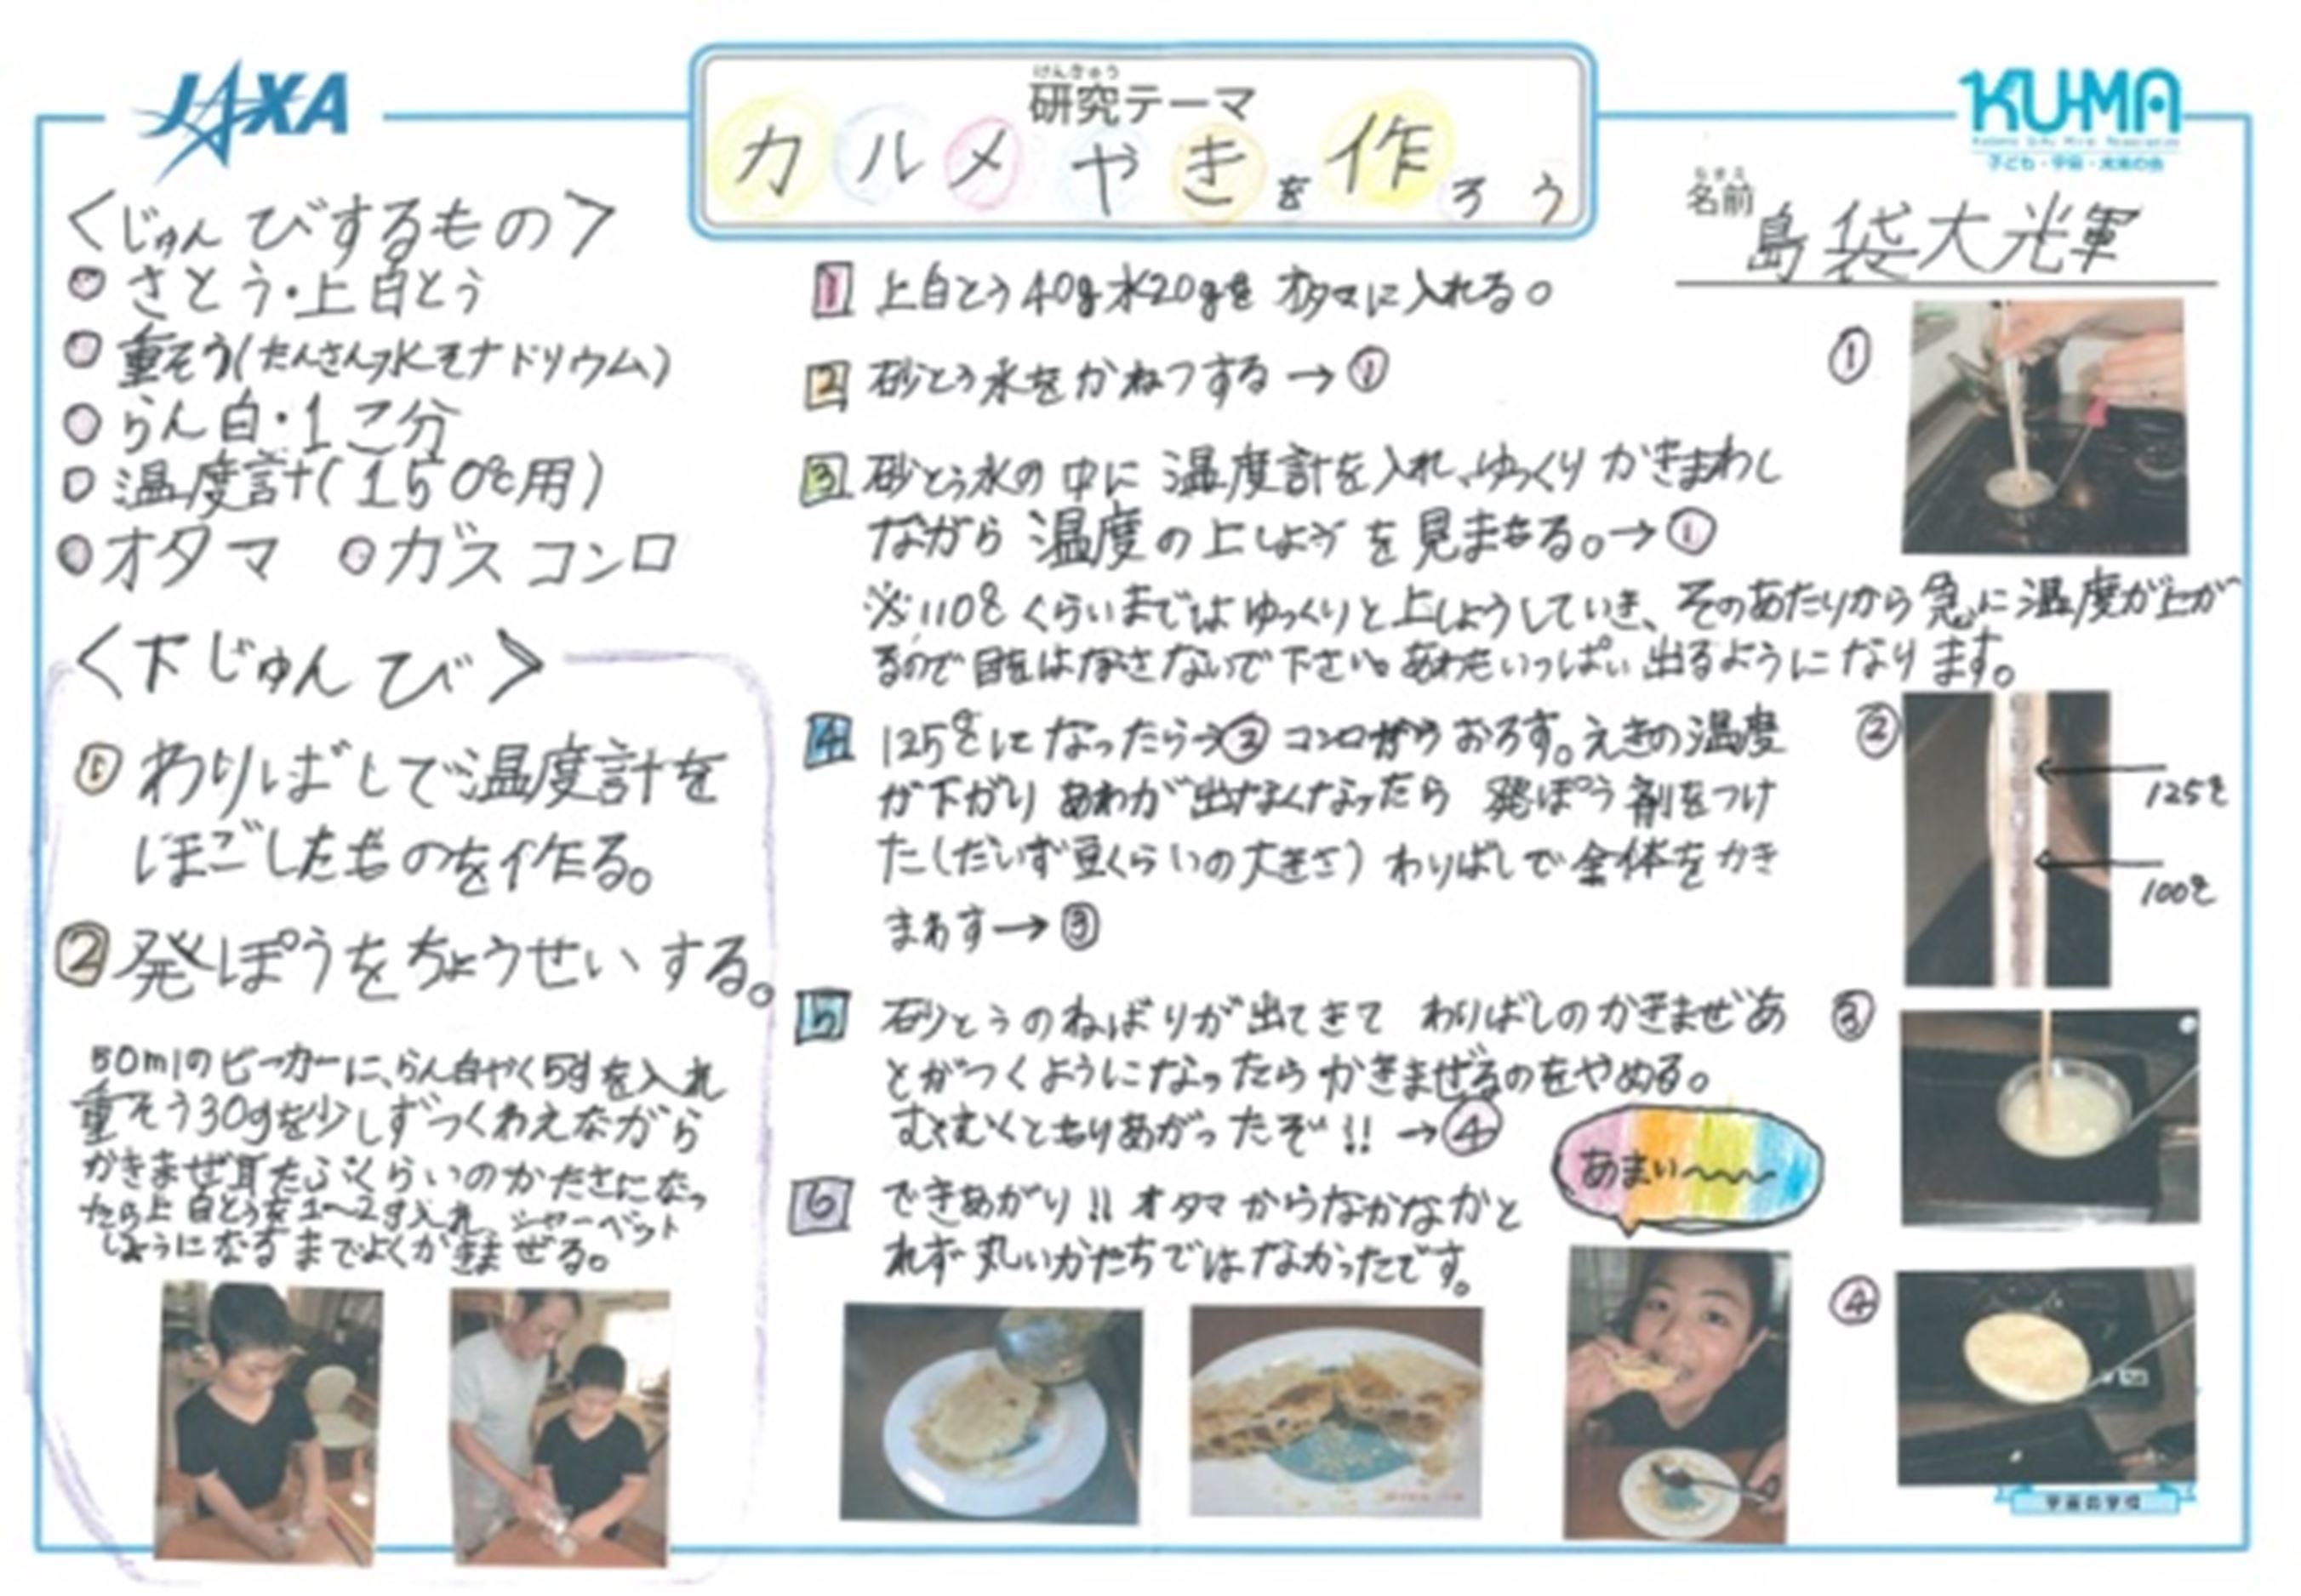 JAXA
けんきゅう
研究テーマ
カルメやきを作ろう
KUMA
子ども・宇宙・未来の会
なまえ
名前
島袋大光軍
<じゅんびするもの>
さとう・上白とう
重そう(たんさん水そナドリウム)
らん白・1こ分
温度計(150℃用)
オタマ ガスコンロ
<下じゅんび>
① わりばしで温度計を
ほごしたものを作る。
② 発ぽうをちょうせいする。
50mlのビーカーに、らん白やく5gを入れ
重そう30gを少しずつくわえながら
かきまぜ耳たぶくらいのかたさになっ
たら上白とうを1〜2g入れ、シャーベット
じょうになるまでよくかきまぜる。
1 上白とう40g水20gをオタマに入れる。
2 砂とう水をかねつする→①
3 砂とう水の中に温度計を入れ、ゆっくりかきまわし
ながら温度の上しょうを見まもる。→①
※110℃くらいまではゆっくりと上しょうしていき、そのあたりから急に温度が上が
るので目をはなさないで下さい。あわもいっぱい出るようになります。
4 125℃になったら→②コンロからおろす。えきの温度
が下がりあわが出なくなったら発ぽう剤をつけ
た(だいず豆くらいの大きさ)わりばしで全体をかき
まわす→③
5 砂とうのねばりが出てきてわりばしのかきまぜあ
とがつくようになったらかきまぜるのをやめる。
むくむくともりあがったぞ!!→④
6 できあがり!!オタマからなかなかと
れず丸いかたちではなかったです。
あまい〜〜〜
①
②
125℃
100℃
③
④
宇宙の学校